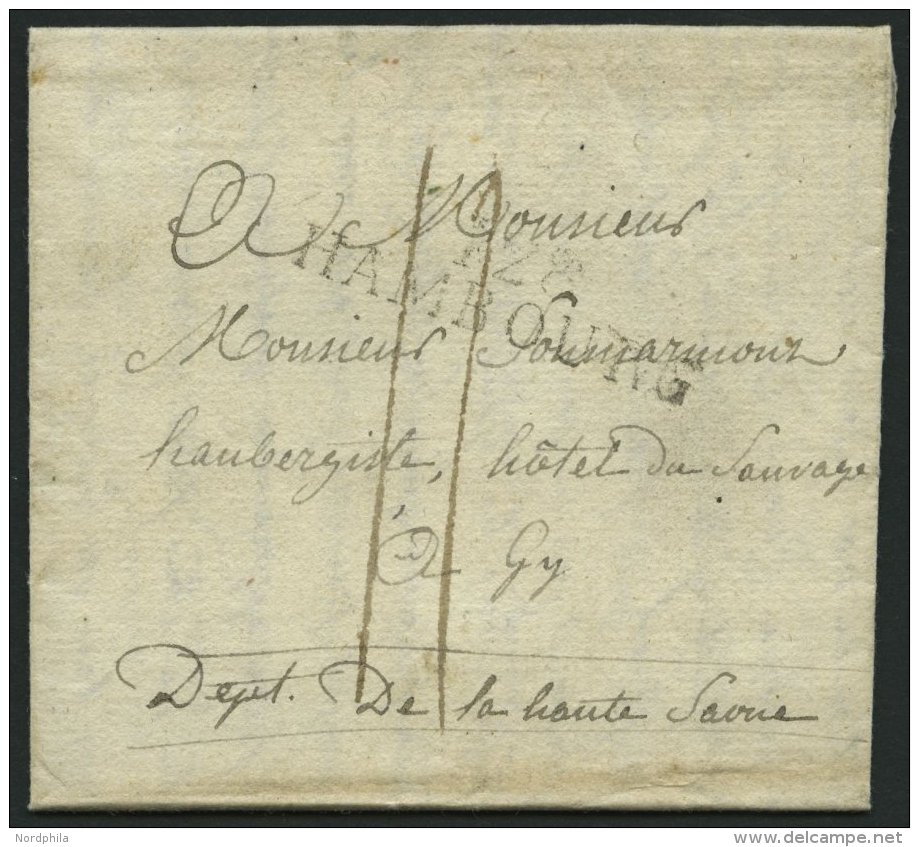 A Monsieur
128
HAMBOURG
Monsieur
haubergiste, hôtel du Sauvage
A Gy
Dept. De la haute Saone
11
Nordphila
www.delcampe.net